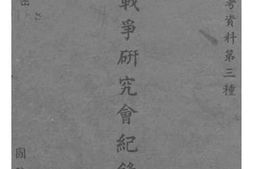 考資料第三種
戰爭研究會紀錄
國